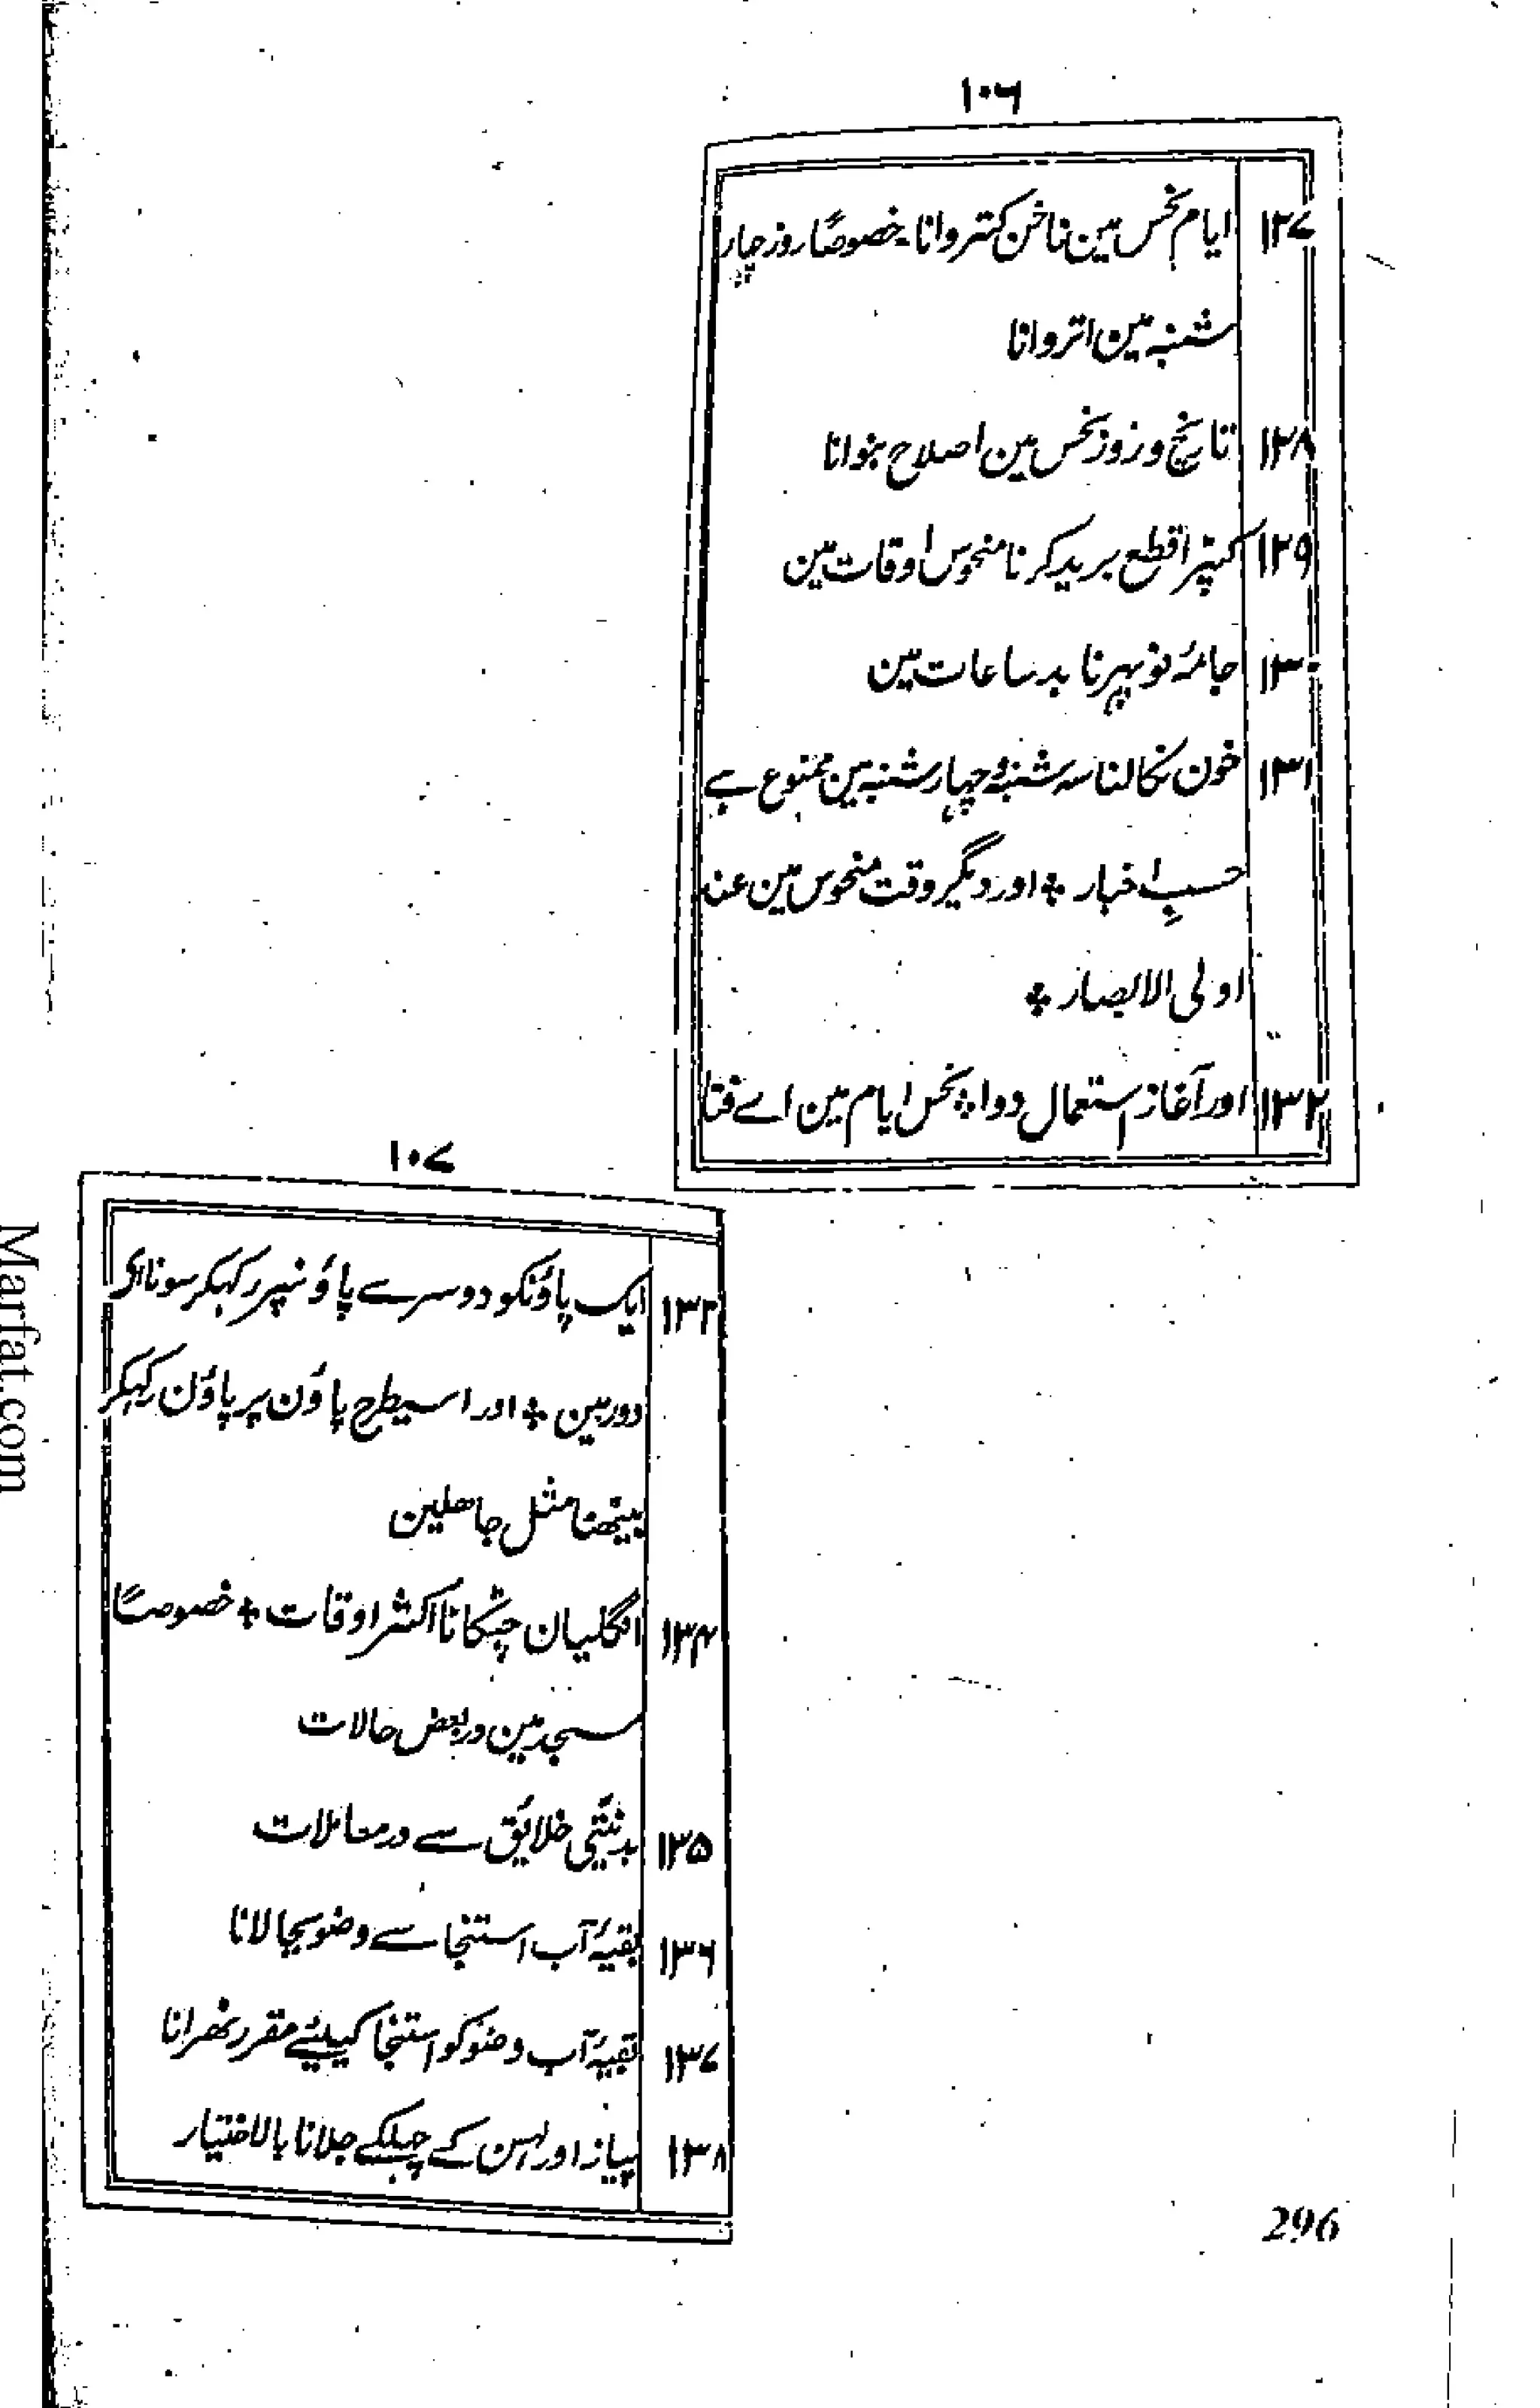 ۱۰۶
۱۲۷ ایام نحس مین ناخن کتروانا۔ خصوصًا روز چار
شنبہ مین اتروانا
۱۲۸ تاریخ و روز نحس مین اصلاح بنوانا
۱۲۹ کپڑا قطع برید کرنا منحوس اوقات مین
۱۳۰ جامۂ نو پہرنا بد ساعات مین
۱۳۱ خون نکالنا سہ شنبہ و چہار شنبہ مین ممنوع ہے
حسبِ اخبار ٭ اور دیگر وقت منحوس مین عند
اولی الابصار ٭
۱۳۲ اور آغاز استعمال دوا ٭ نحس ایام مین اے فتا
۱۰۷
۱۳۳ ایک پاؤنکو دوسرے پاؤنپر رکہکر سونا اس
دور مین ٭ اور اسیطرح پاؤن پر پاؤن رکہکر
بیٹھنا مثل جاھلین
۱۳۴ انگلیان چٹکانا اکثر اوقات ٭ خصوصاً
مسجد مین و بعض حالات
۱۳۵ بدنیتی خلائق سے در معاملات
۱۳۶ بقیۂ آب استنجا سے وضو بجا لانا
۱۳۷ بقیۂ آب وضو کو استنجا کیلیئے مقرر ٹھرانا
۱۳۸ پیاز اور لہسن کے چہلکے جلانا بالاختیار
296
Marfat.com